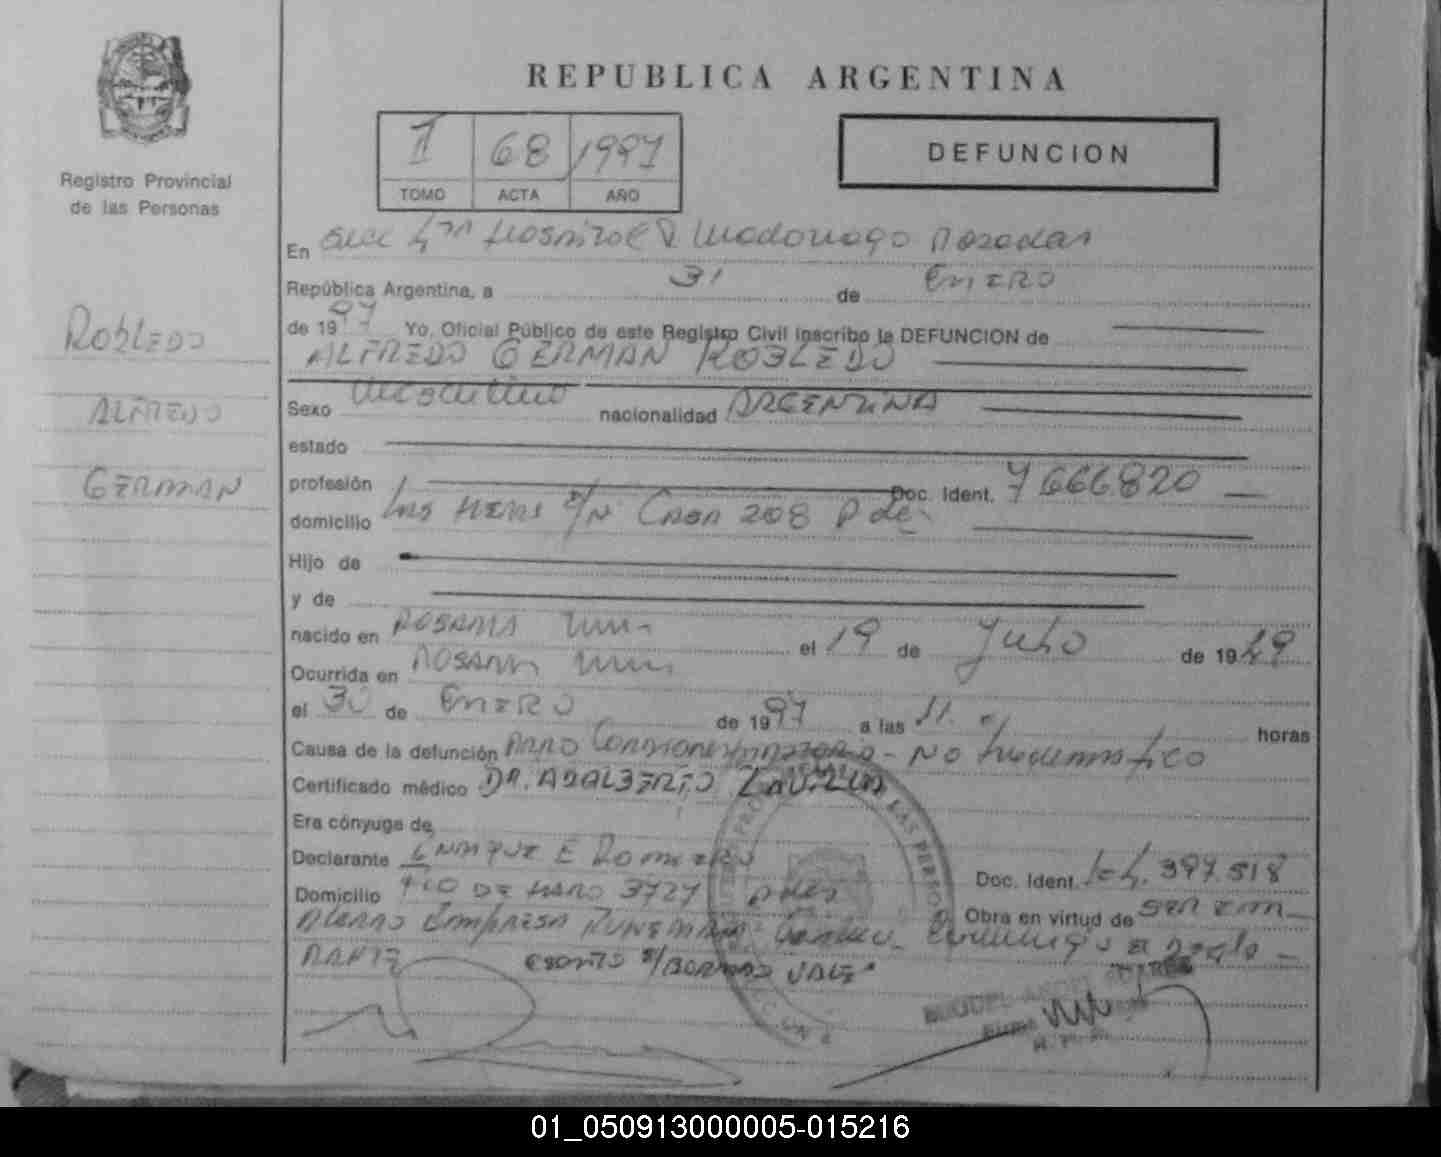 REPUBLICA ARGENTINA
Registro Provincial
de las Personas
1 68 1997
TOMO ACTA AÑO
DEFUNCION
ROBLEDO
ALFREDO
GERMAN
En Posadas
República Argentina, a 31 de ENERO
de 1997 Yo, Oficial Público de este Registro Civil inscribo la DEFUNCION de
ALFREDO GERMAN ROBLEDO
Sexo Masculino nacionalidad ARGENTINA
estado
profesión Doc. Ident. 7666820
domicilio Las Heras S/N Casa 208 Pdas
Hijo de
y de
nacido en POSADAS el 19 de Julio de 1949
Ocurrida en POSADAS
el 30 de ENERO de 1997 a las 11 horas
Causa de la defunción PARO CARDIORESPIRATORIO - NO traumatico
Certificado médico DR. ADALBERTO
Era cónyuge de
Declarante ENRIQUE E ROMERO Doc. Ident. 397.518
Domicilio DE HARO 3727 Pdas Obra en virtud de SER EM
EMPRESA
VALE
01_050913000005-015216